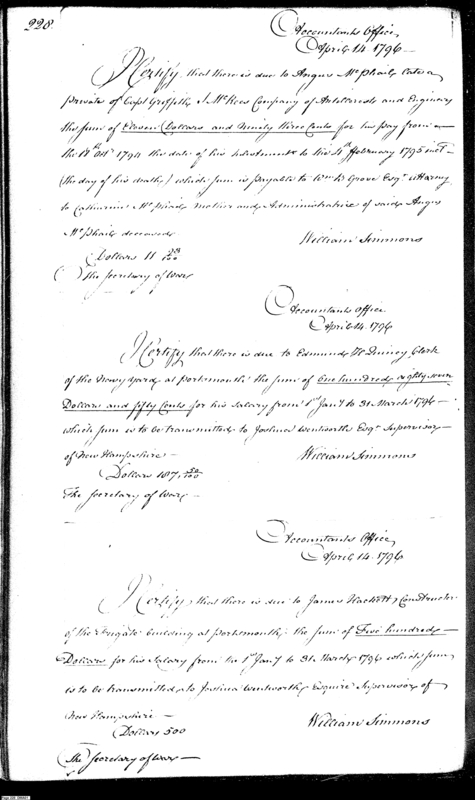 228
Accountants Office
April 14 1796
I Certify that there is due to Angus McPhail late a
private of Capt Griffith J McRees Company of Artillerists and Engineers
the sum of Eleven Dollars and Ninety three Cents for his pay from
the 11th Octr 1794 the date of his inlistment to the 4th February 1795 incl
(the day of his death) which sum is payable to Wm B Grove Esqr attorney
to Catharine McPhail Mother and Administratrix of said Angus
McPhail deceased
William Simmons
Dollars 11 93/100
The Secretary of War
Accountants Office
April 14. 1796
I Certify that there is due to Edmund H Quincy Clerk
of the Navy yard at portsmouth the sum of One hundred & eighty seven
Dollars and fifty Cents for his salary from 1st Jany to 31 March 1796
which sum is to be transmitted to Joshua Wentworth Esqr Supervisor
of New Hampshire
William Simmons
Dollars 187 50/100
The Secretary of War
Accountants Office
April 14. 1796
I Certify, that there is due to James Hackett, Constructor
of the Frigate building at portsmouth, the sum of Five hundred
Dollars for his salary from the 1st Jany to 31 March 1796 which sum
is to be transmitted to Joshua Wentworth Esquire Supervisor of
New Hampshire
William Simmons
Dollars 500
The Secretary of War